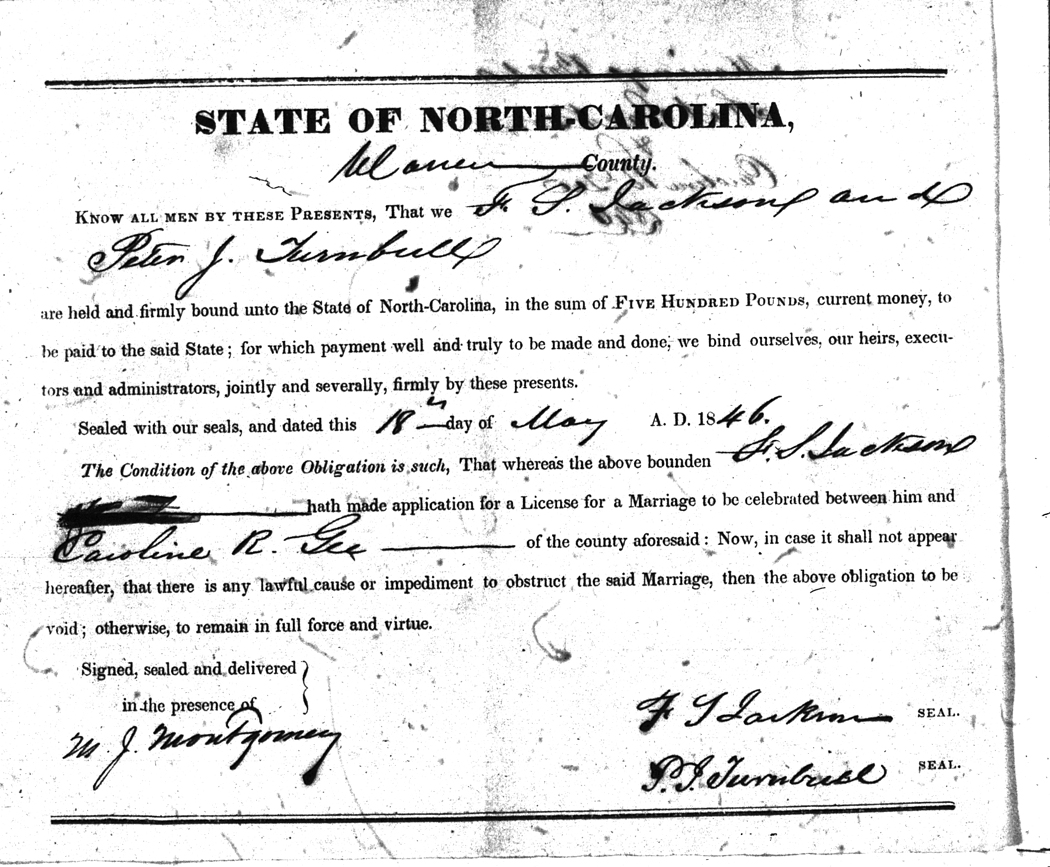 STATE OF NORTH-CAROLINA,
Warren County.
KNOW ALL MEN BY THESE PRESENTS, That we F. S. Jackson and
Peter J. Turnbull
are held and firmly bound unto the State of North-Carolina, in the sum of FIVE HUNDRED POUNDS, current money, to
be paid to the said State; for which payment well and truly to be made and done, we bind ourselves, our heirs, execu-
tors and administrators, jointly and severally, firmly by these presents.
Sealed with our seals, and dated this 18th day of May A. D. 1846.
The Condition of the above Obligation is such, That whereas the above bounden F. S. Jackson
hath made application for a License for a Marriage to be celebrated between him and
Caroline R. Gee of the county aforesaid: Now, in case it shall not appear
hereafter, that there is any lawful cause or impediment to obstruct the said Marriage, then the above obligation to be
void; otherwise, to remain in full force and virtue.
Signed, sealed and delivered
in the presence of
M. J. Montgomery
F S Jackson SEAL.
P. J. Turnbull SEAL.